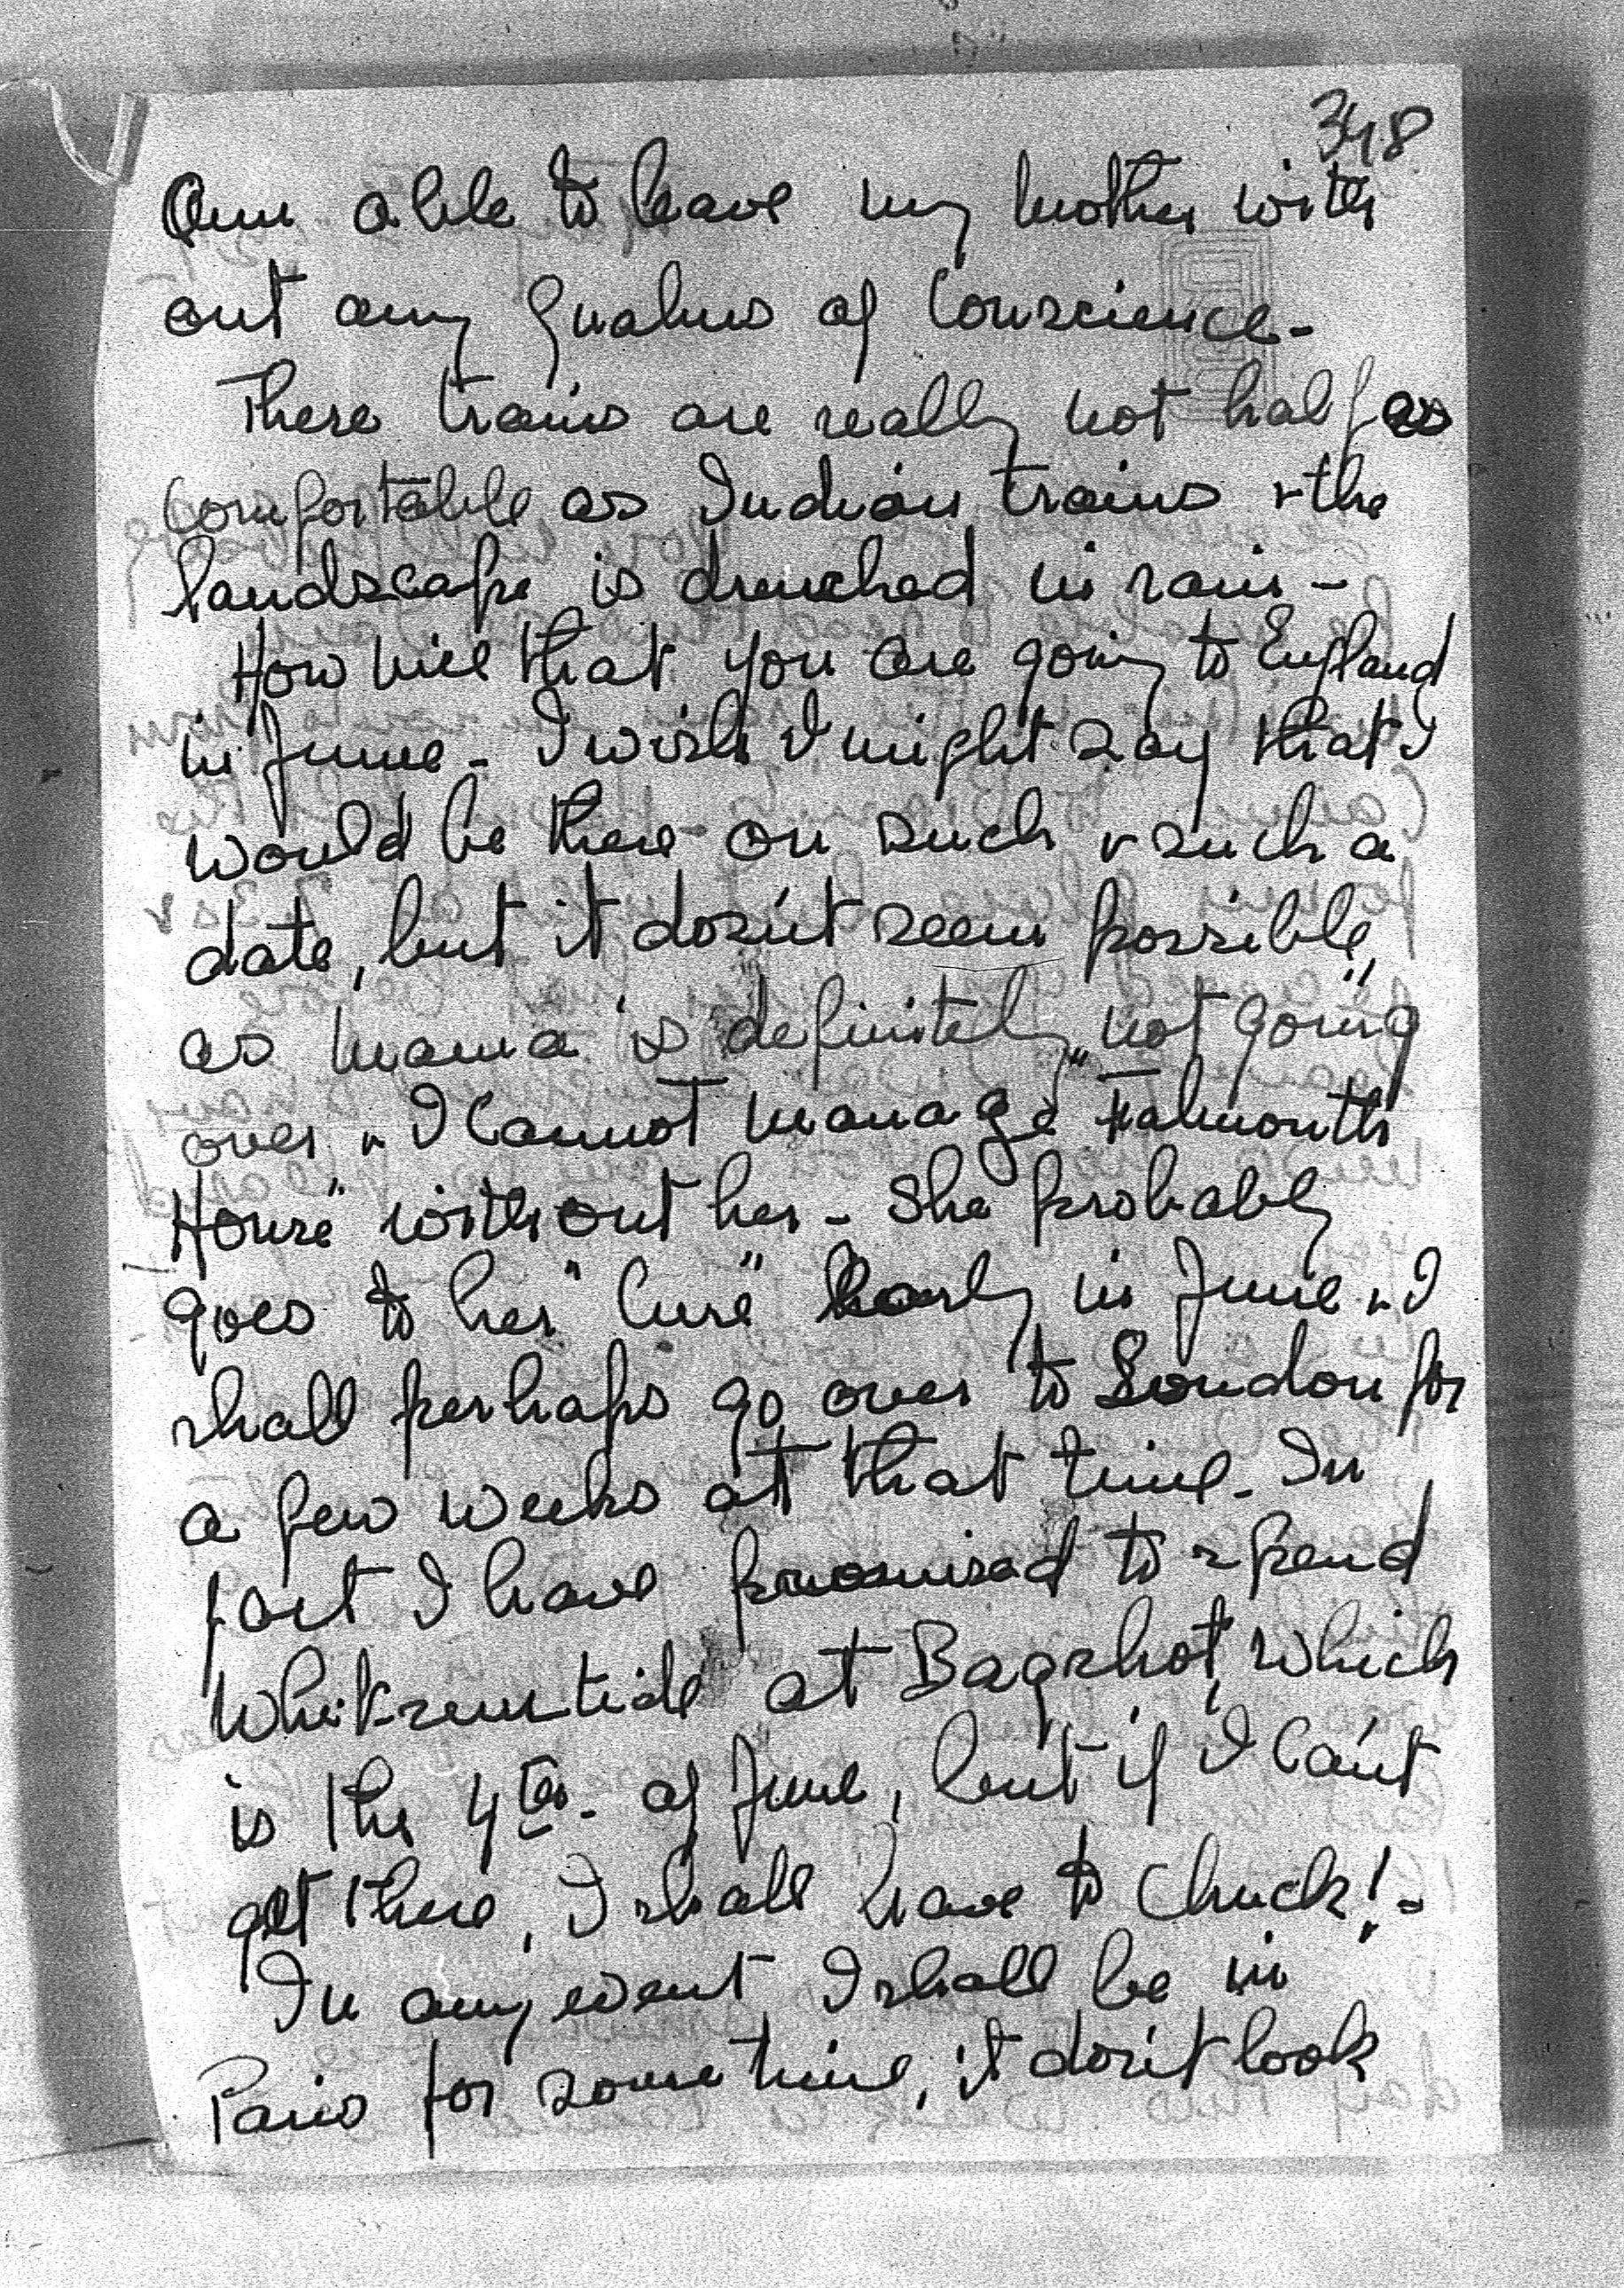 348
Am able to leave my mother with
out any qualms of Conscience -
These trains are really not half as
Comfortable as Indian trains & the
landscape is drenched in rain -
How nice that you are going to England
in June - I wish I might say that I
would be there on such & such a
date, but it dosn't seem possible,
as Mama is definitely "not going
over" & I cannot manage "Falmouth
House" without her - She probably
goes to her "Cure" early in June & I
shall perhaps go over to London for
a few weeks at that time - In
fact I have promised to spend
Whitsuntide at Bagshot, which
is the 4th - of June, but if I can't
get there, I shall have to Chuck! -
In any event I shall be in
Paris for some time, it don't look